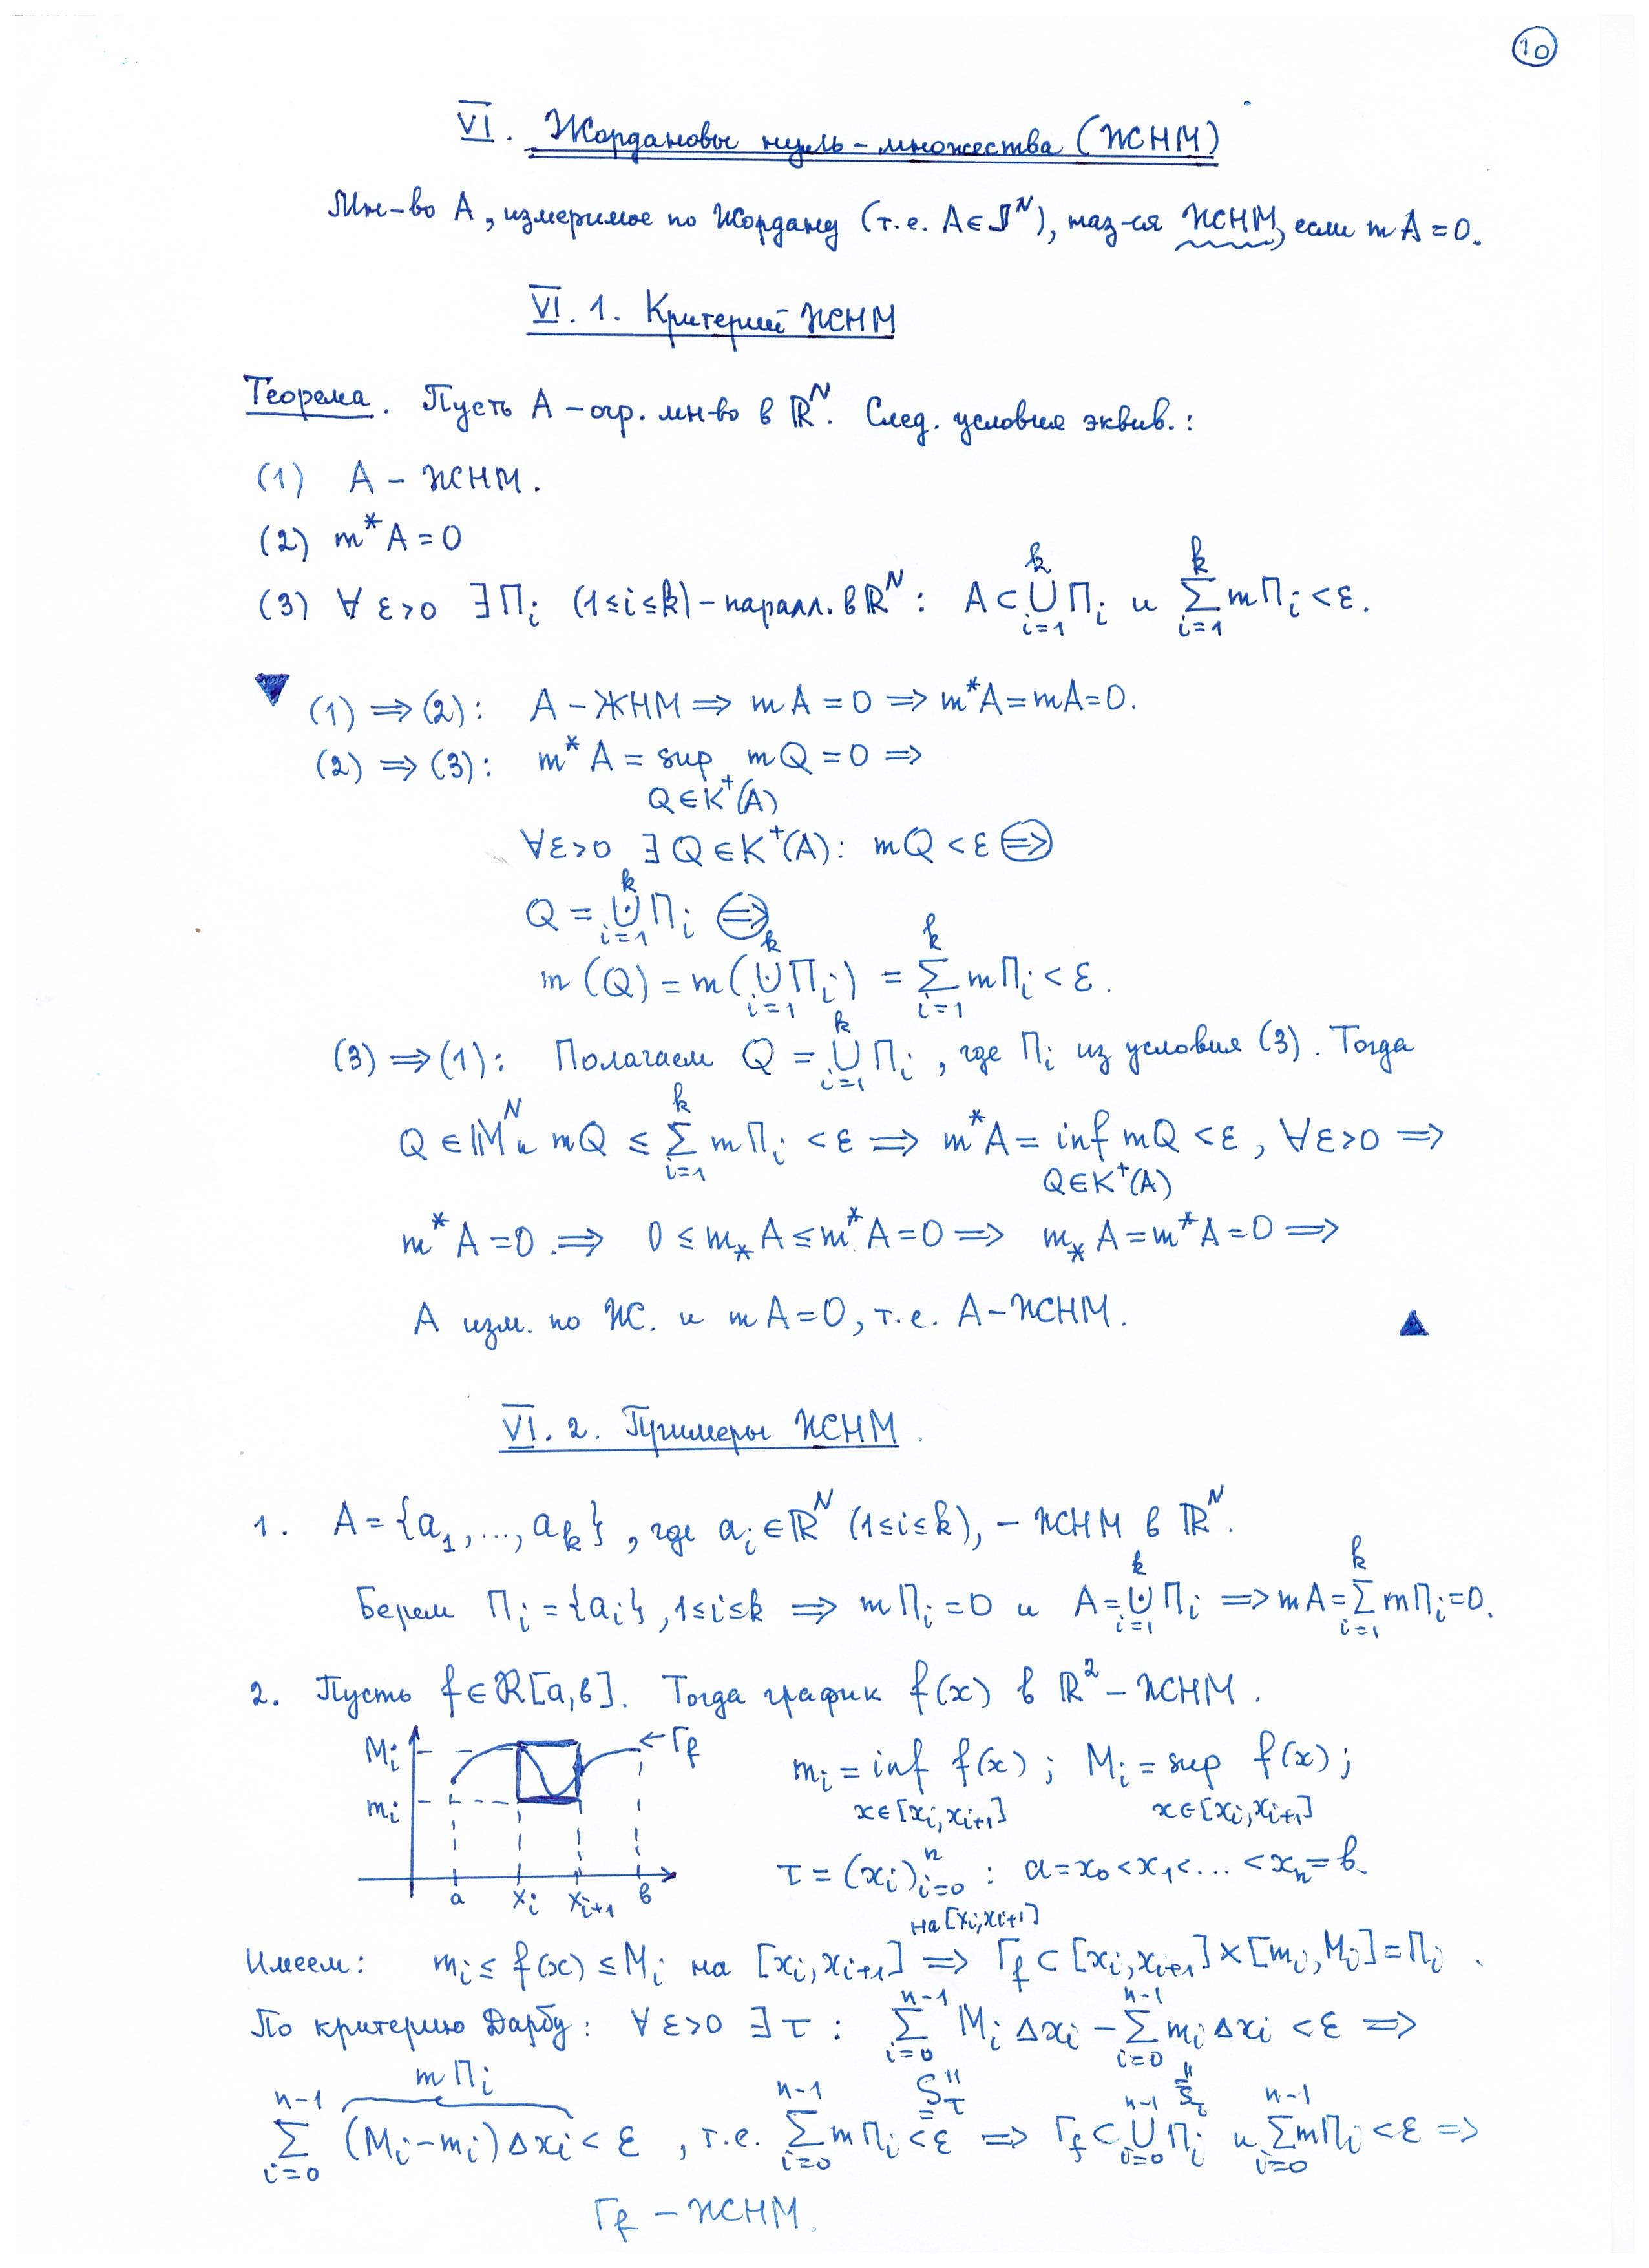 10
VI. Жордановы нуль-множества (ЖНМ)
Мн-во A, измеримое по Жордану (т.е. A∈𝕁^N), наз-ся ЖНМ, если mA=0.
VI.1. Критерий ЖНМ
Теорема. Пусть A – огр. мн-во в ℝ^N. След. условия эквив.:
(1) A – ЖНМ.
(2) m*A=0
(3) ∀ε>0 ∃Π_i (1≤i≤k) – паралл. в ℝ^N: A⊂⋃_{i=1}^k Π_i и ∑_{i=1}^k mΠ_i<ε.
▼ (1)⇒(2): A – ЖНМ ⇒ mA=0 ⇒ m*A=mA=0.
(2)⇒(3): m*A = sup_{Q∈K^+(A)} mQ=0 ⇒
∀ε>0 ∃Q∈K^+(A): mQ<ε ⇒
Q = ⨃_{i=1}^k Π_i ⇒
m(Q)=m(⨃_{i=1}^k Π_i) = ∑_{i=1}^k mΠ_i<ε.
(3)⇒(1): Полагаем Q = ⋃_{i=1}^k Π_i, где Π_i из условия (3). Тогда
Q∈𝕄^N и mQ ≤ ∑_{i=1}^k mΠ_i <ε ⇒ m*A = inf_{Q∈K^+(A)} mQ<ε, ∀ε>0 ⇒
m*A=0 ⇒ 0≤m_*A≤m*A=0 ⇒ m_*A=m*A=0 ⇒
A изм. по Ж. и mA=0, т.е. A – ЖНМ. ▲
VI.2. Примеры ЖНМ.
1. A={a_1,...,a_k}, где a_i∈ℝ^N (1≤i≤k), – ЖНМ в ℝ^N.
Берем Π_i={a_i}, 1≤i≤k ⇒ mΠ_i=0 и A=⨃_{i=1}^k Π_i ⇒ mA=∑_{i=1}^k mΠ_i=0.
2. Пусть f∈ℛ[a,b]. Тогда график f(x) в ℝ^2 – ЖНМ.
M_i ←Γ_f
m_i
a x_i x_{i+1} b
m_i = inf_{x∈[x_i,x_{i+1}]} f(x); M_i = sup_{x∈[x_i,x_{i+1}]} f(x);
τ = (x_i)_{i=0}^n : a=x_0<x_1<...<x_n=b.
на [x_i,x_{i+1}]
Имеем: m_i≤f(x)≤M_i на [x_i,x_{i+1}] ⇒ Γ_f⊂[x_i,x_{i+1}]×[m_i,M_i]=Π_i.
По критерию Дарбу: ∀ε>0 ∃τ: ∑_{i=0}^{n-1} M_i Δx_i – ∑_{i=0}^{n-1} m_i Δx_i <ε ⇒
mΠ_i S_τ S_τ
∑_{i=0}^{n-1} (M_i–m_i)Δx_i<ε, т.е. ∑_{i=0}^{n-1} mΠ_i<ε ⇒ Γ_f⊂⋃_{i=0}^{n-1} Π_i и ∑_{i=0}^{n-1} mΠ_i<ε ⇒
Γ_f – ЖНМ.